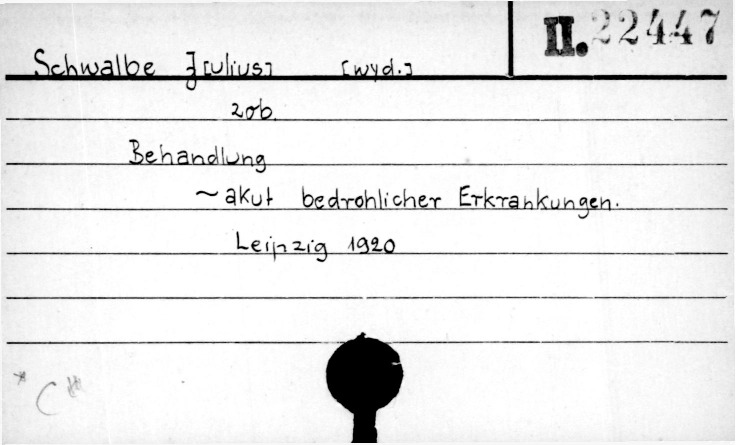 II. 22447
Schwalbe J[ulius] [wyd.]
zob.
Behandlung
~ akut bedrohlicher Erkrankungen.
Leipzig 1920
* C **